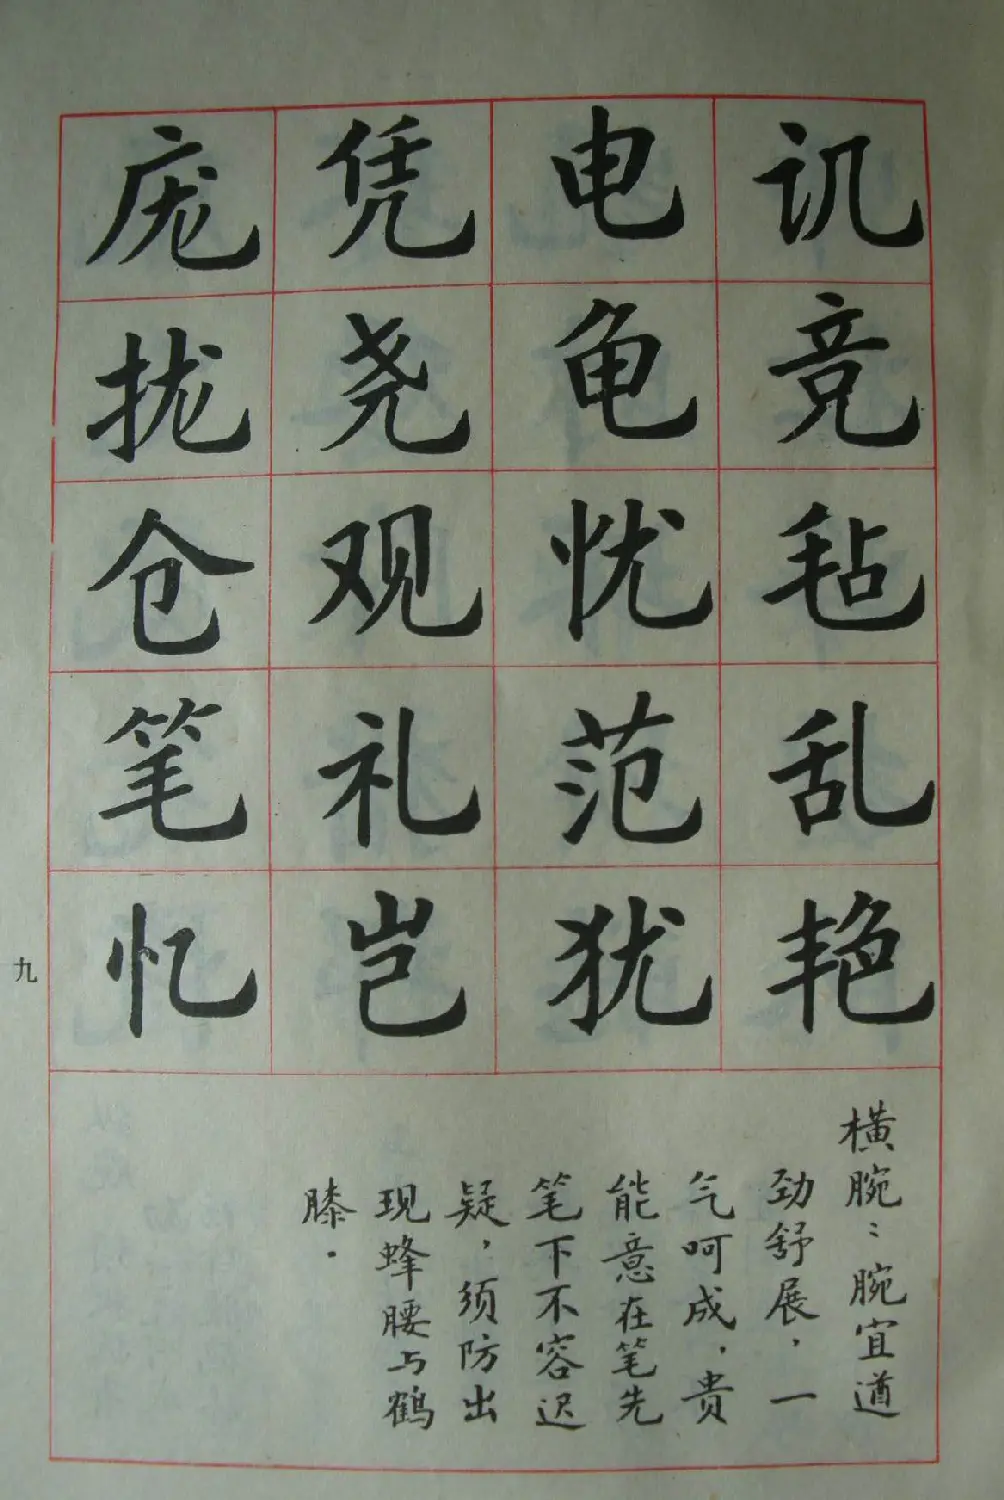 讥竞毡乱艳
电龟忧范犹
凭尧观礼岂
庞拢仓笔忆
横腕：腕宜遒
劲舒展，一
气呵成，贵
能意在笔先
笔下不容迟
疑，须防出
现蜂腰与鹤
膝．
九